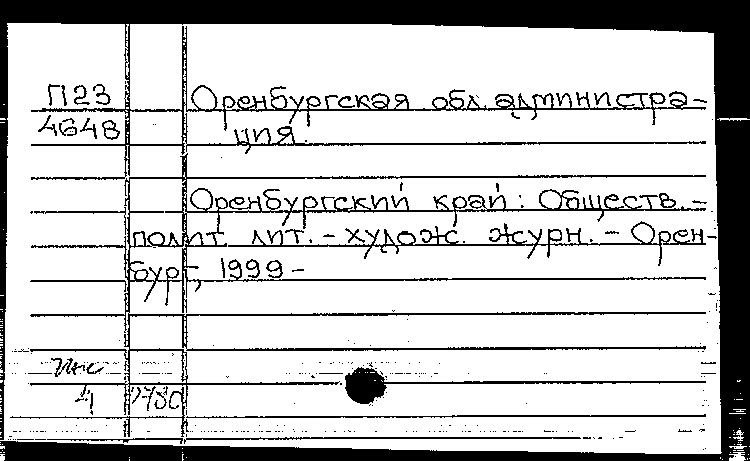 П23
4648
Оренбургская обл. администра-
ция.
Оренбургский край: Обществ.-
полит. лит.-худож. журн. - Орен-
бург, 1999 -